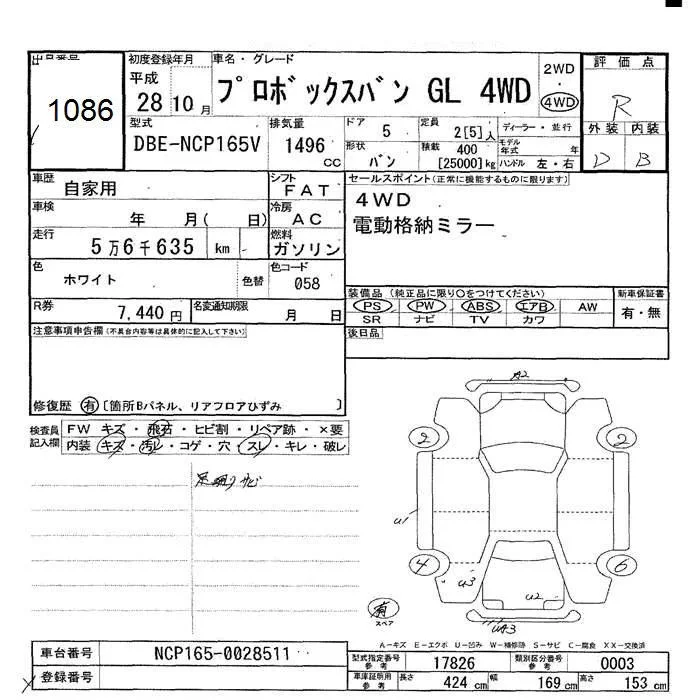 出品番号
1086
初度登録年月
平成
28 10 月
車名・グレード
プロボックスバン GL 4WD
2WD
・
4WD
評価点
R
外装 内装
D B
型式
DBE-NCP165V
排気量
1496
cc
ドア 5
形状
バン
定員 2[5]人
積載 400
[25000]kg
ディーラー・並行
モデル年式 年
ハンドル 左・右
車歴
自家用
シフト
FAT
車検
年 月( 日)
冷房
AC
走行
5万6千635 km
燃料
ガソリン
色
ホワイト
色替
色コード
058
R券
7,440 円
名変通知期限
月 日
セールスポイント(正常に機能するものに限ります)
4WD
電動格納ミラー
装備品(純正品に限り○をつけてください)
PS PW ABS エアB AW
SR ナビ TV カワ
新車保証書
有・無
後日品
注意事項申告欄(不具合内容等は具体的に記入して下さい)
修復歴 有 [箇所Bパネル、リアフロアひずみ ]
検査員記入欄
FW キズ・飛石・ヒビ割・リペア跡・×要
内装 キズ・汚レ・コゲ・穴・スレ・キレ・破レ
足廻りサビ
A2
2 2
U1
4 6
U3
U2
UA3
有
スペア
A-キズ E-エクボ U-凹み W-補修跡 S-サビ C-腐食 XX-交換済
車台番号 NCP165-0028511
登録番号
型式指定番号参考 17826 類別区分番号参考 0003
車庫証明用参考 長さ 424 cm 幅 169 cm 高さ 153 cm